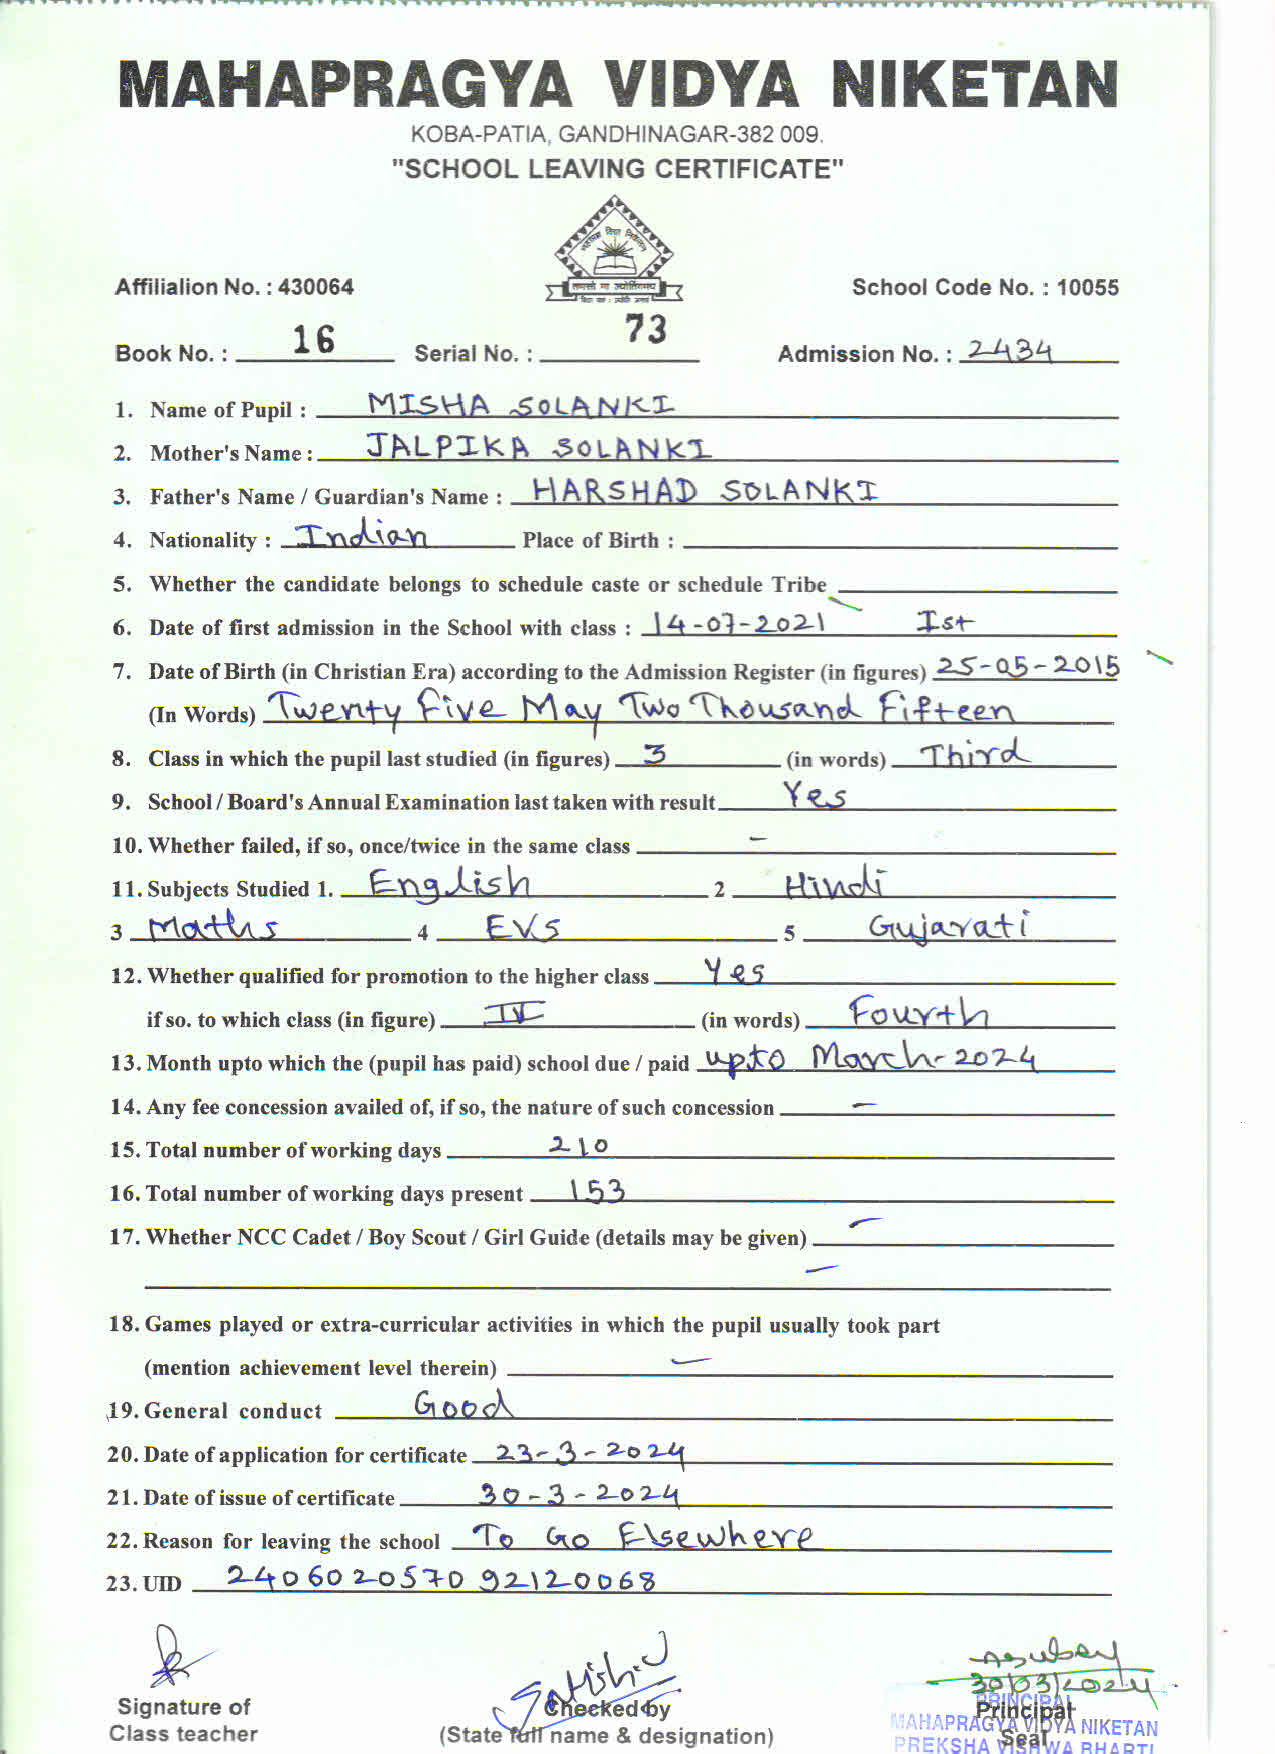 MAHAPRAGYA VIDYA NIKETAN
KOBA-PATIA, GANDHINAGAR-382 009.
"SCHOOL LEAVING CERTIFICATE"
Affilialion No. : 430064
School Code No. : 10055
Book No. : 16 Serial No. : 73 Admission No. : 2434
1. Name of Pupil : MISHA SOLANKI
2. Mother's Name : JALPIKA SOLANKI
3. Father's Name / Guardian's Name : HARSHAD SOLANKI
4. Nationality : Indian Place of Birth :
5. Whether the candidate belongs to schedule caste or schedule Tribe
6. Date of first admission in the School with class : 14-07-2021 Ist
7. Date of Birth (in Christian Era) according to the Admission Register (in figures) 25-05-2015
(In Words) Twenty Five May Two Thousand Fifteen
8. Class in which the pupil last studied (in figures) 3 (in words) Third
9. School / Board's Annual Examination last taken with result Yes
10. Whether failed, if so, once/twice in the same class -
11. Subjects Studied 1. English 2 Hindi
3 Maths 4 EVS 5 Gujarati
12. Whether qualified for promotion to the higher class Yes
if so. to which class (in figure) IV (in words) Fourth
13. Month upto which the (pupil has paid) school due / paid upto March-2024
14. Any fee concession availed of, if so, the nature of such concession -
15. Total number of working days 210
16. Total number of working days present 153
17. Whether NCC Cadet / Boy Scout / Girl Guide (details may be given) -
-
18. Games played or extra-curricular activities in which the pupil usually took part
(mention achievement level therein) -
19. General conduct Good
20. Date of application for certificate 23-3-2024
21. Date of issue of certificate 30-3-2024
22. Reason for leaving the school To Go Elsewhere
23. UID 240602057092120068
30/03/2024
Signature of
Class teacher
Checked by
(State full name & designation)
PRINCIPAL
Principal
MAHAPRAGYA VIDYA NIKETAN
Seal
PREKSHA VISHWA BHARTI